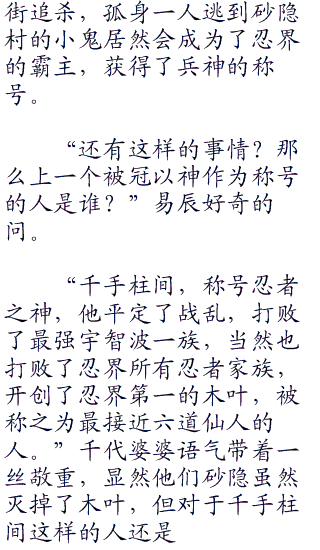 街追杀，孤身一人逃到砂隐
村的小鬼居然会成为了忍界
的霸主，获得了兵神的称
号。
“还有这样的事情？那
么上一个被冠以神作为称号
的人是谁？”易辰好奇的
问。
“千手柱间，称号忍者
之神，他平定了战乱，打败
了最强宇智波一族，当然也
打败了忍界所有忍者家族，
开创了忍界第一的木叶，被
称之为最接近六道仙人的
人。”千代婆婆语气带着一
丝敬重，显然他们砂隐虽然
灭掉了木叶，但对于千手柱
间这样的人还是